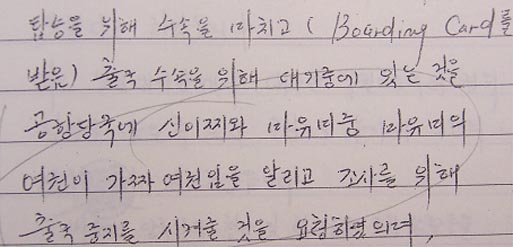 탑승을 위해 수속을 마치고 ( Boarding Card를
받음) 출국 수속을 위해 대기중에 있는 것을
공항당국에 신이찌와 마유미중 마유미의
여권이 가짜 여권임을 알리고 조사를 위해
출국 중지를 시켜줄 것을 요청하였으며,